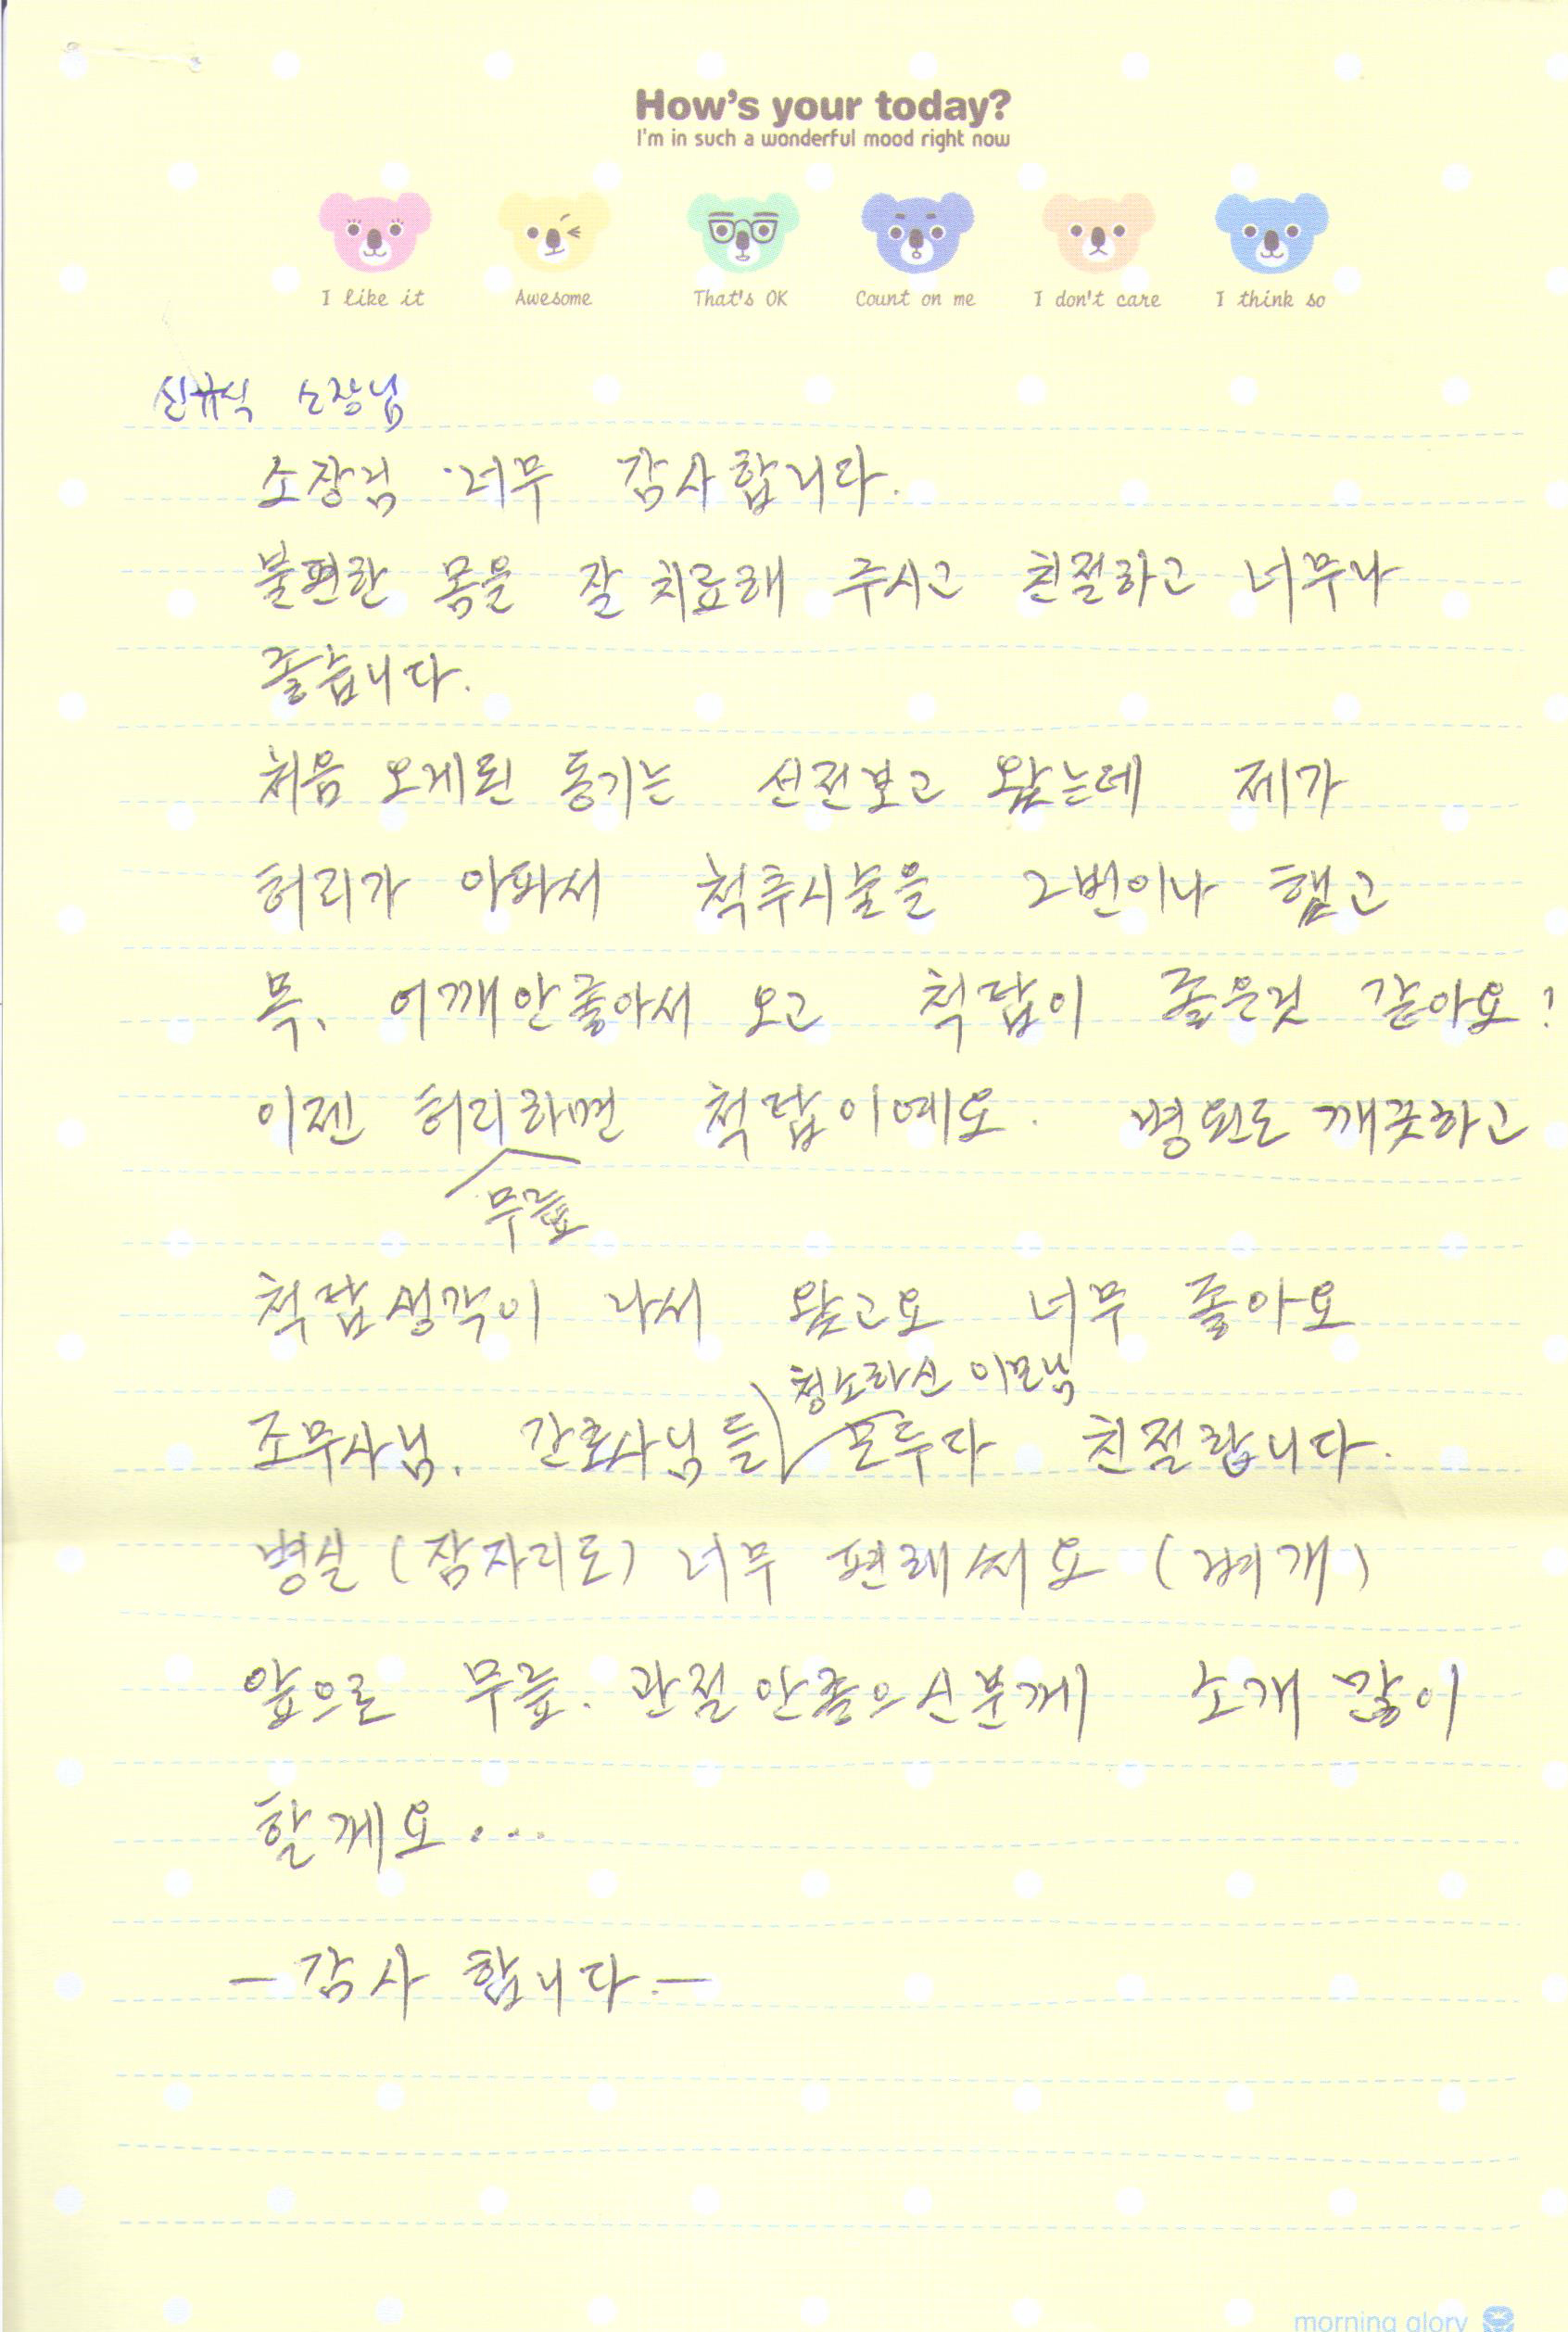 How's your today?
I'm in such a wonderful mood right now
I like it Awesome That's OK Count on me I don't care I think so
신규식 소장님
소장님 너무 감사합니다.
불편한 몸을 잘 치료해 주시고 친절하고 너무나
좋습니다.
처음 오게된 동기는 선전보고 왔는데 제가
허리가 아파서 척추시술을 2번이나 했고
목, 어깨안좋아서 오고 척탑이 좋은것 같아요!
이젠 허리하면 척탑이예요. 병원도 깨끗하고
무릎
척탑생각이 나서 왔고요 너무 좋아요
청소하신 이모님
조무사님, 간호사님들 모두다 친절합니다.
병실 (잠자리도) 너무 편해써요 (벼개)
앞으로 무릎. 관절안좋으신분께 소개 많이
할께요...
- 감사 합니다. -
morning glory